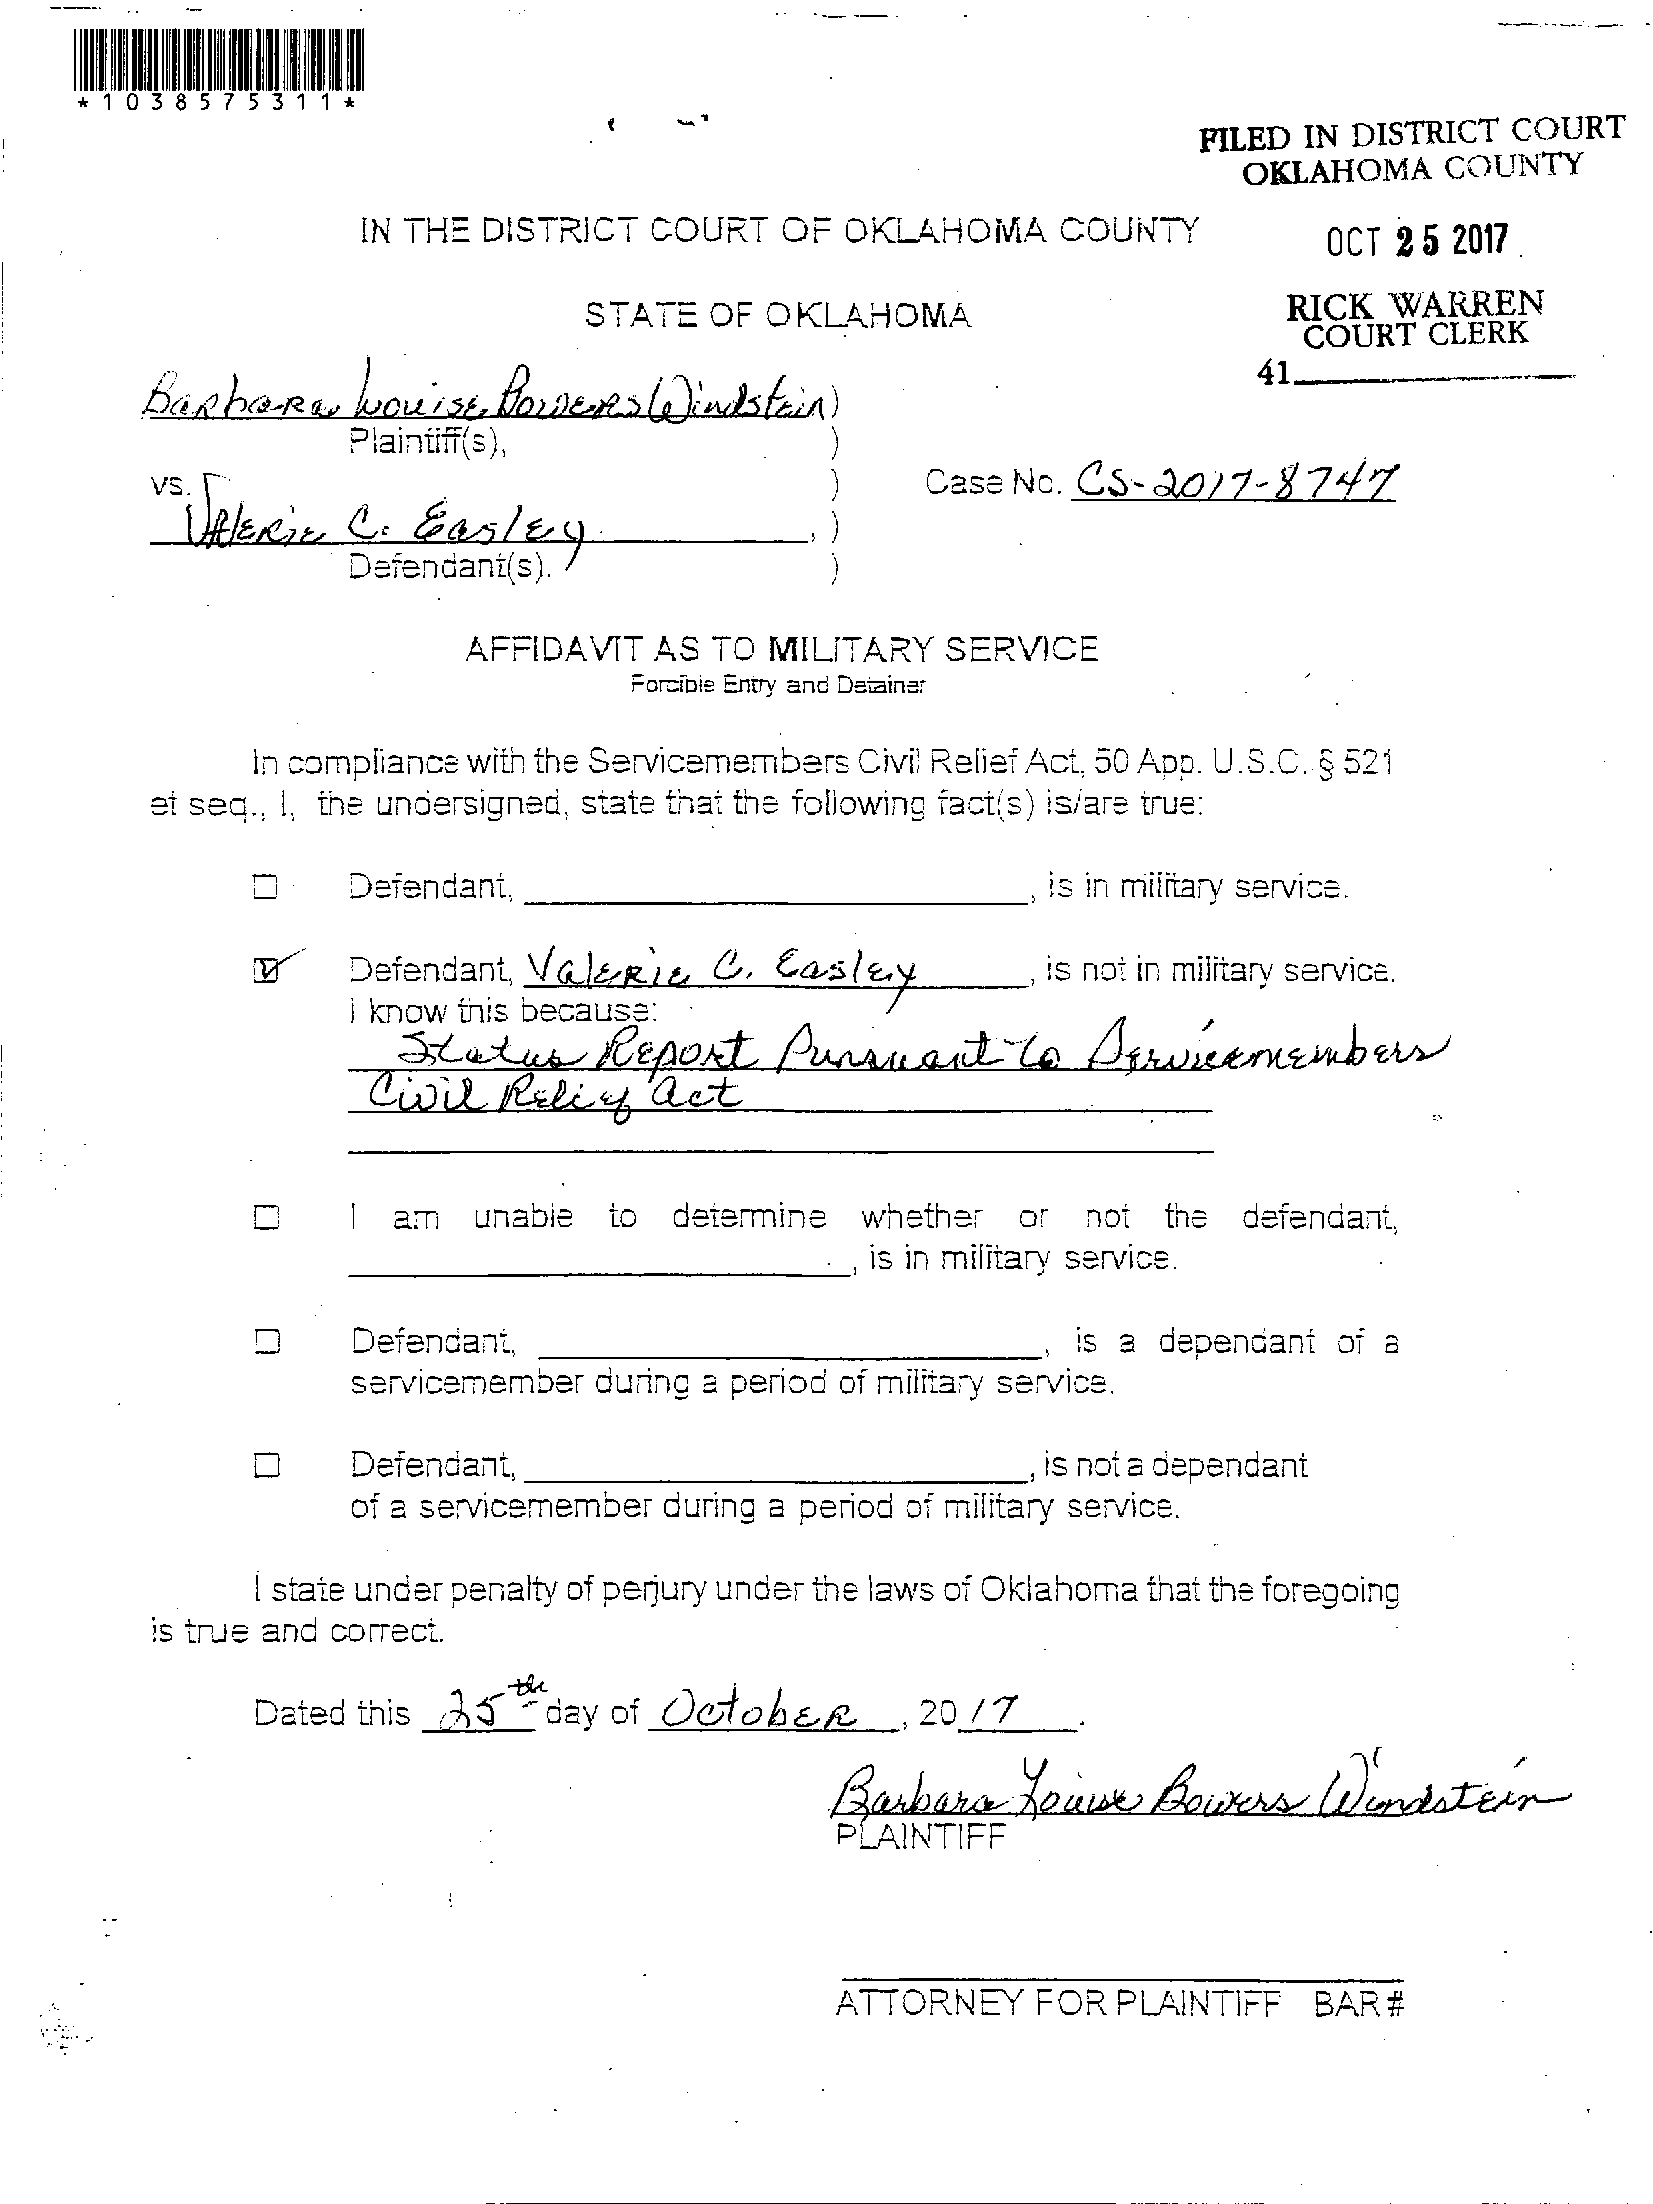 *1038575311*
FILED IN DISTRICT COURT
OKLAHOMA COUNTY
IN THE DISTRICT COURT OF OKLAHOMA COUNTY
OCT 25 2017
STATE OF OKLAHOMA
RICK WARREN
COURT CLERK
41
Barbara Louise Bowers Windstein)
Plaintiff(s), )
vs. ) Case No. CS-2017-8747
Valerie C. Easley , )
Defendant(s). )
AFFIDAVIT AS TO MILITARY SERVICE
Forcible Entry and Detainer
In compliance with the Servicemembers Civil Relief Act, 50 App. U.S.C. § 521
et seq., I, the undersigned, state that the following fact(s) is/are true:
☐ Defendant, , is in military service.
☑ Defendant, Valerie C. Easley , is not in military service.
I know this because:
Status Report Pursuant to Servicemembers
Civil Relief Act
☐ I am unable to determine whether or not the defendant,
, is in military service.
☐ Defendant, , is a dependant of a
servicemember during a period of military service.
☐ Defendant, , is not a dependant
of a servicemember during a period of military service.
I state under penalty of perjury under the laws of Oklahoma that the foregoing
is true and correct.
Dated this 25th day of October , 2017 .
Barbara Louise Bowers Windstein
PLAINTIFF
ATTORNEY FOR PLAINTIFF BAR#